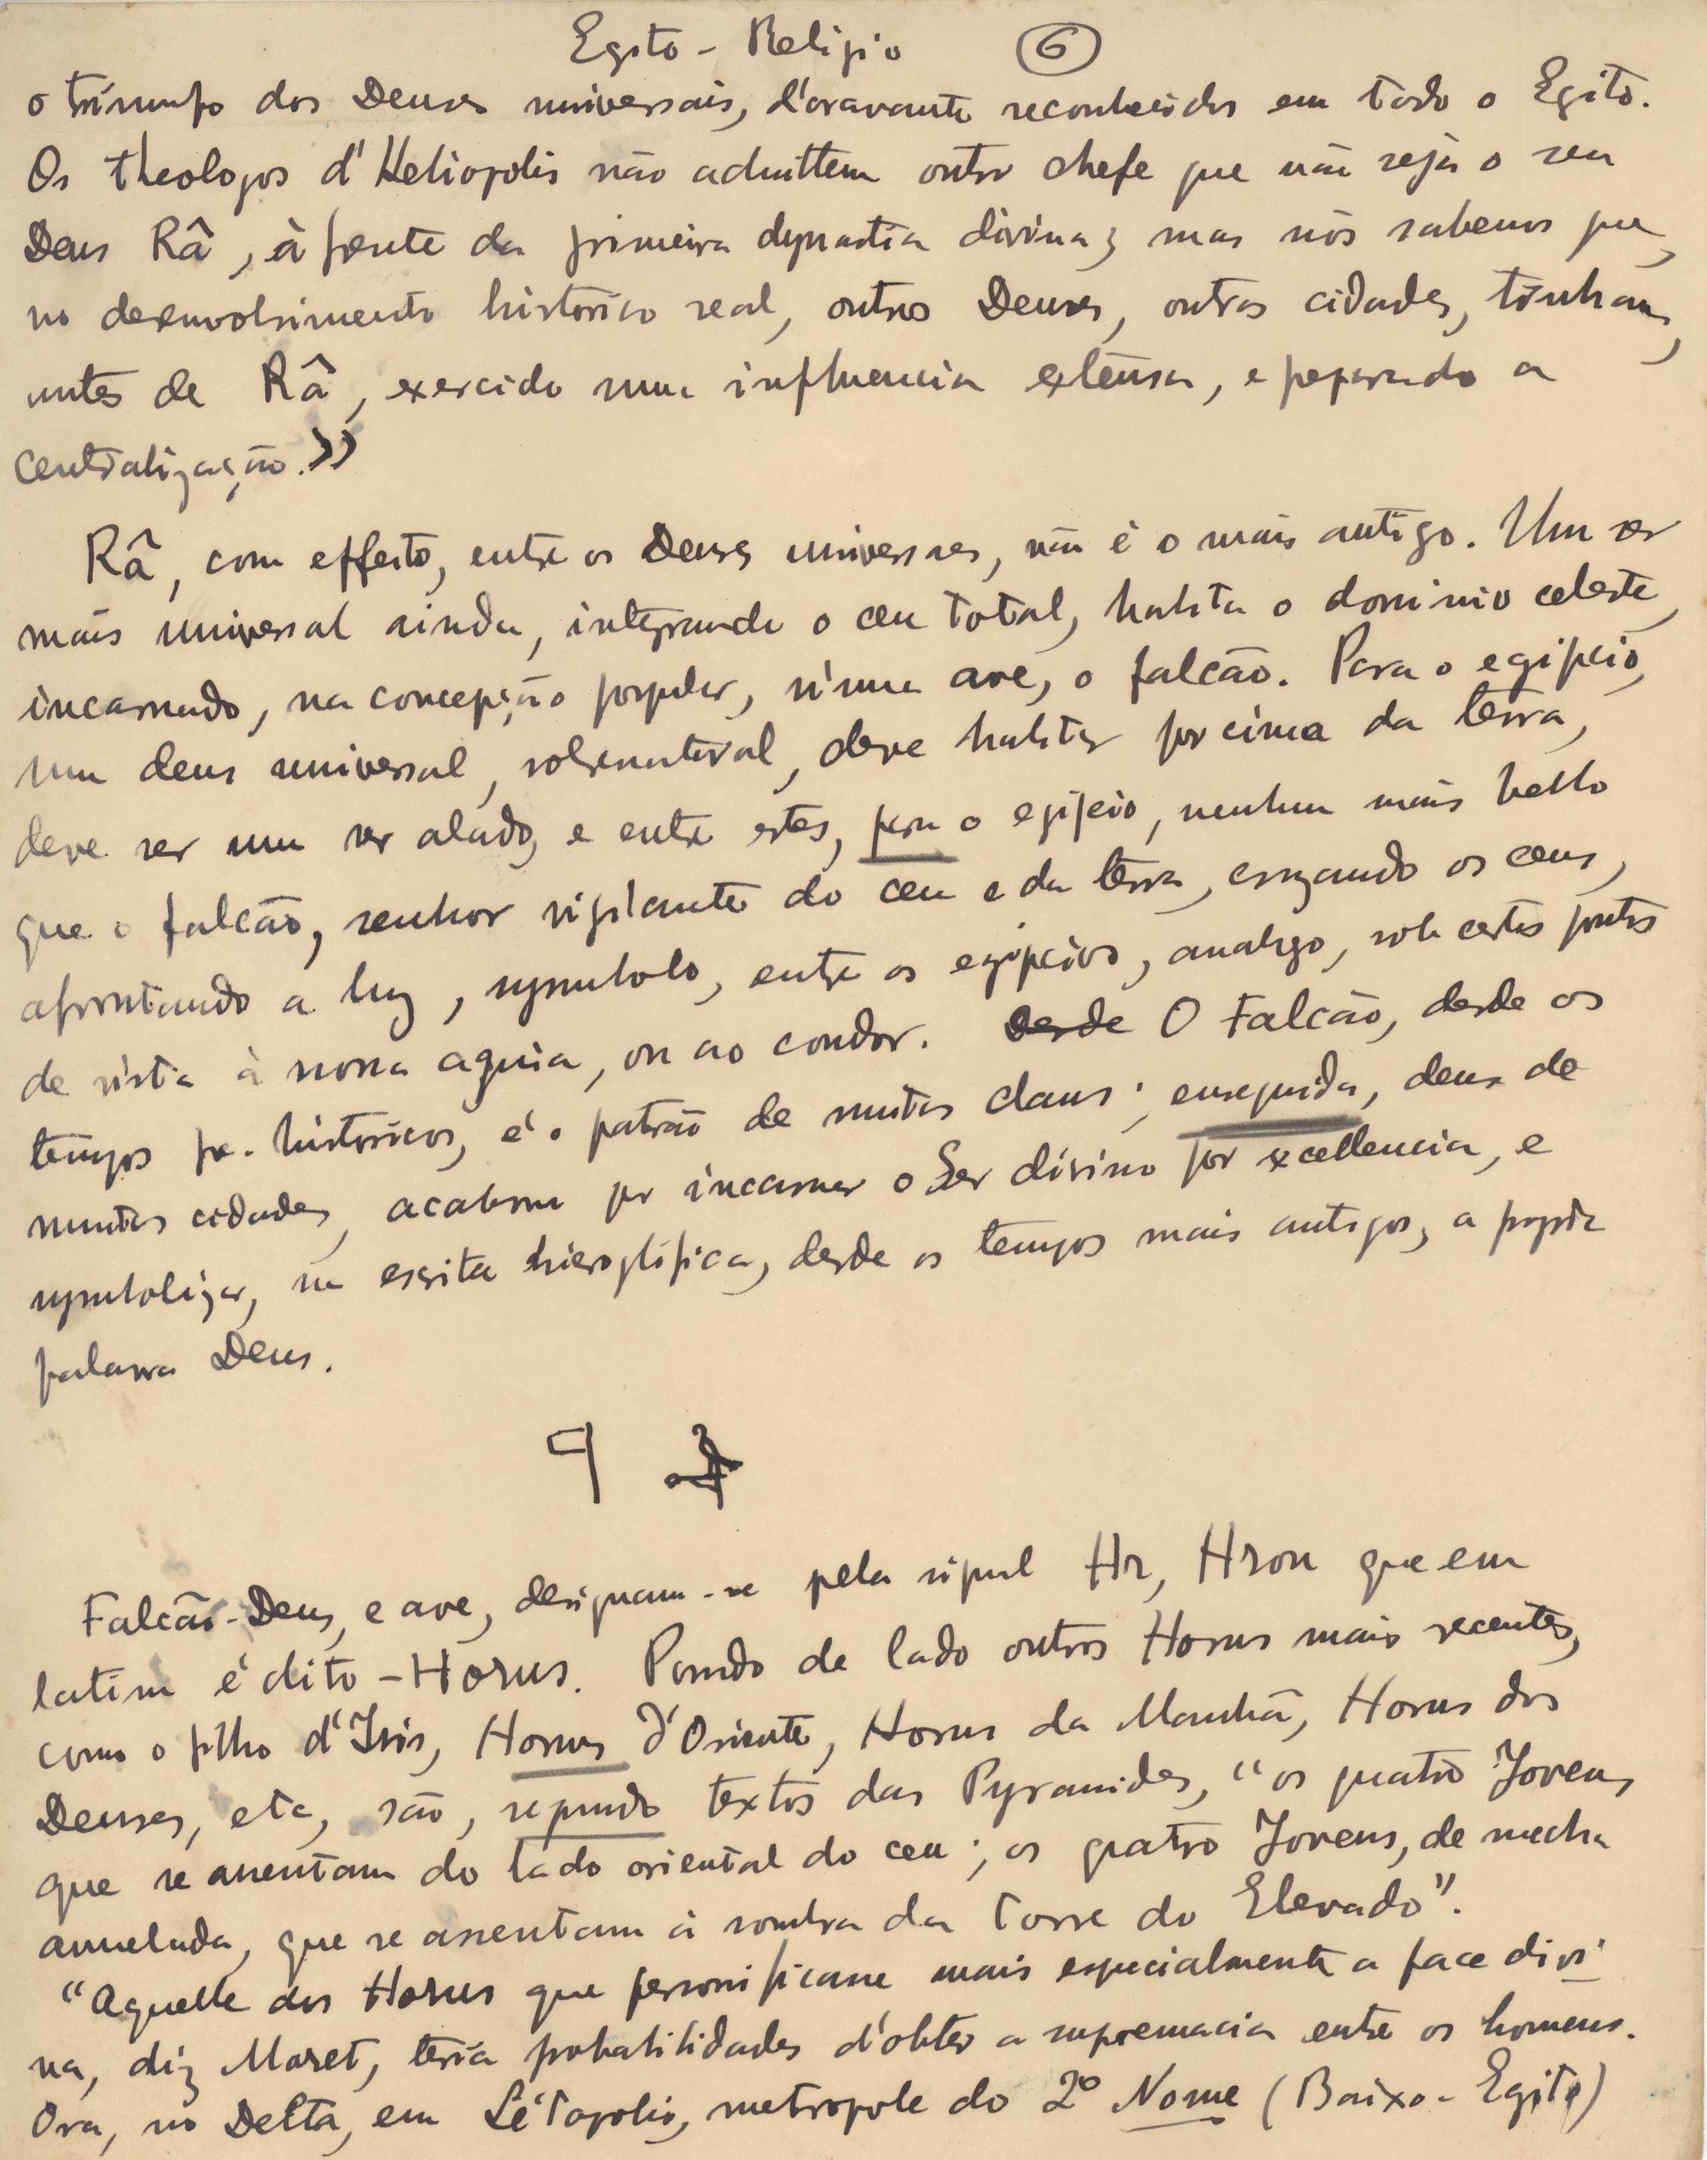 Egito - Religião 6
o triumpho dos Deuses universais, d'oravante reconhecidos em todo o Egito.
Os theologos d'Heliopolis não admittem outro chefe que não seja o seu
Deus Râ, à frente da primeira dynastia divina; mas nós sabemos que,
no desenvolvimento historico real, outros Deuses, outras cidades, tinham,
antes de Râ, exercido uma influencia extensa, e preparado a
centralização.»
Rã, com effeito, entre os Deuses universaes, não é o mais antigo. Um ser
mais universal ainda, integrando o ceu total, habita o dominio celeste,
incarnado, na concepção popular, n'uma ave, o falcão. Para o egipcio,
um deus universal, sobrenatural, deve habitar por cima da terra,
deve ser um ser alado, e entre estes, para o egipcio, nenhum mais bello
que o falcão, senhor vigilante do ceu e da terra, cruzando os ceus,
afrontando a luz, symbolo, entre os egipcios, analogo, sob certos pontos
de vista à nossa aguia, ou ao condor. Desde O Falcão, desde os
tempos pre-historicos, é o patrão de muitos clans; enseguida, deus de
muitas cidades, acabou por incarnar o Ser divino por excellencia, e
symbolizar, na escrita hieroglifica, desde os tempos mais antigos, a propria
palavra Deus.
Falcão-Deus, e ave, designam-se pela signal Hr, Hrou que em
latim é dito - Horus. Pondo de lado outros Horus mais recentes,
como o filho d'Isis, Horus d'Oriente, Horus da Manhã, Horus dos
Deuses, etc, são, segundo textos das Pyramides, "os quatro Jovens
que se assentam do lado oriental do ceu; os quatro Jovens, de mecha
annelada, que se assentam à sombra da Torre do Elevado".
"Aquelle dos Horus que personificasse mais especialmente a face divi-
na, diz Moret, teria probabilidades d'obter a supremacia entre os homens.
Ora, no Delta, em Létopolis, metropole do 2º Nome (Baixo-Egito)